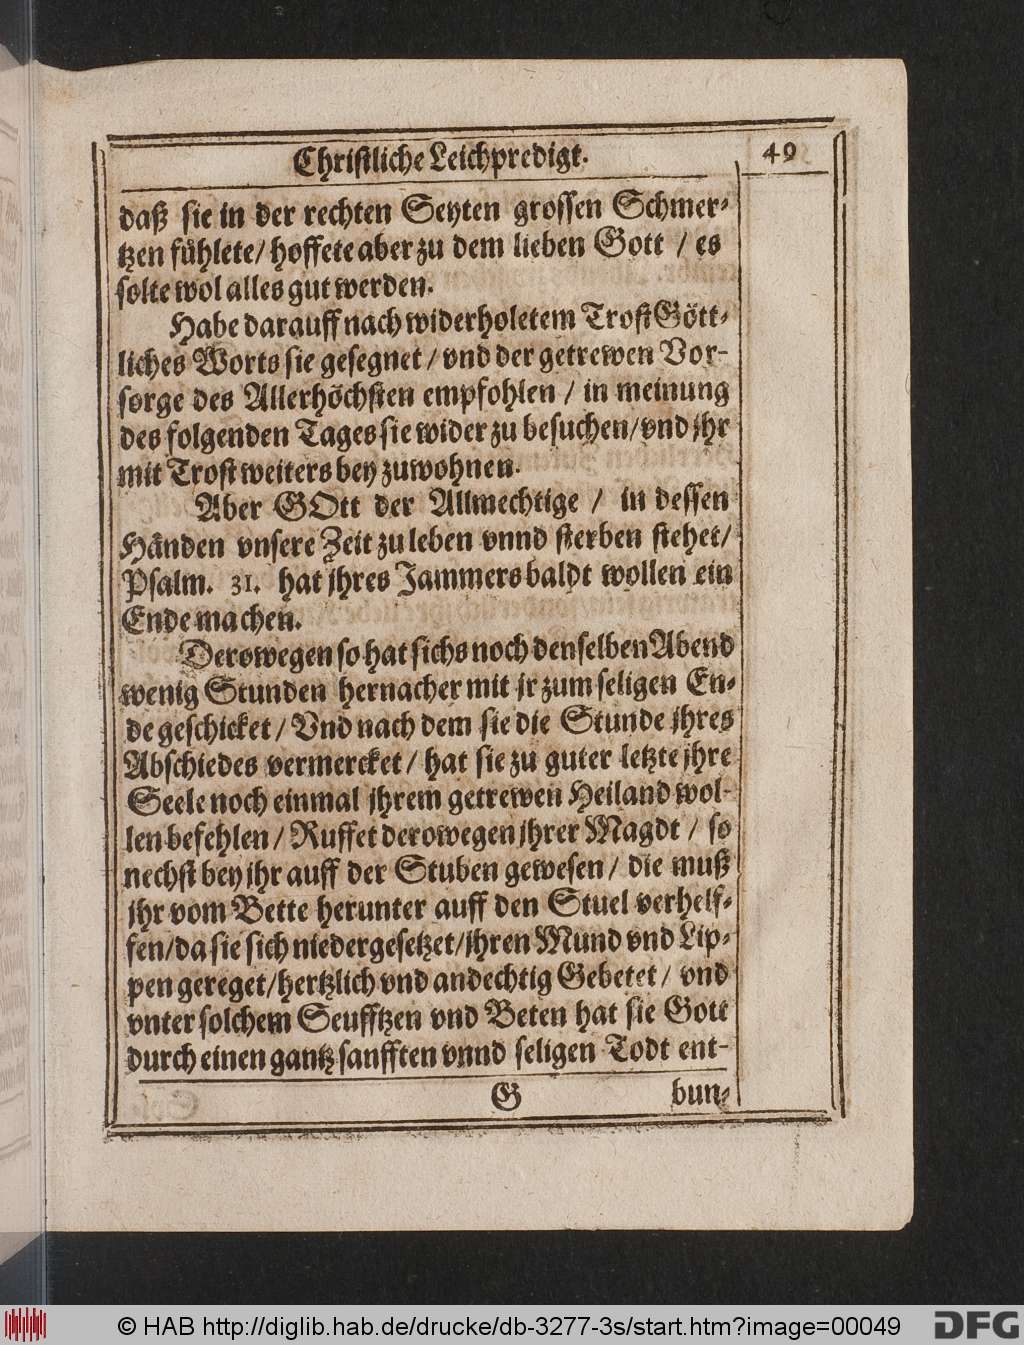 Christliche Leichpredigt.
49
daß sie in der rechten Seyten grossen Schmer-
tzen fühlete/ hoffete aber zu dem lieben Gott / es
solte wol alles gut werden.
Habe darauff nach widerholetem Trost Gött-
liches Worts sie gesegnet / vnd der getrewen Vor-
sorge des Allerhöchsten empfohlen / in meinung
des folgenden Tages sie wider zu besuchen/ vnd jhr
mit Trost weiters bey zuwohnen.
Aber GOtt der Allmechtige / in dessen
Händen vnsere Zeit zu leben vnnd sterben stehet/
Psalm. 31. hat jhres Jammers baldt wollen ein
Ende machen.
Derowegen so hat sichs noch denselben Abend
wenig Stunden hernacher mit jr zum seligen En-
de geschicket / Vnd nach dem sie die Stunde jhres
Abschiedes vermercket / hat sie zu guter letzte jhre
Seele noch einmal jhrem getrewen Heiland wol-
len befehlen / Ruffet derowegen jhrer Magdt / so
nechst bey jhr auff der Stuben gewesen / die muß
jhr vom Bette herunter auff den Stuel verhelf-
fen/ da sie sich niedergesetzet/ jhren Mund vnd Lip-
pen gereget/ hertzlich vnd andechtig Gebetet / vnd
vnter solchem Seufftzen vnd Beten hat sie Gott
durch einen gantz sanfften vnnd seligen Todt ent-
G
bun-
© HAB http://diglib.hab.de/drucke/db-3277-3s/start.htm?image=00049
DFG